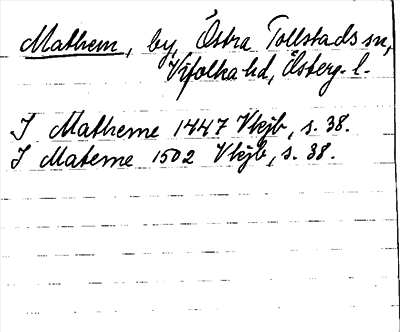 Mathem, by, Östra Tollstads sn,
Vifolka hd, Österg. l.
I Matheme 1447 Vkjb, s. 38.
I Mateme 1502 Vkjb, s. 38.